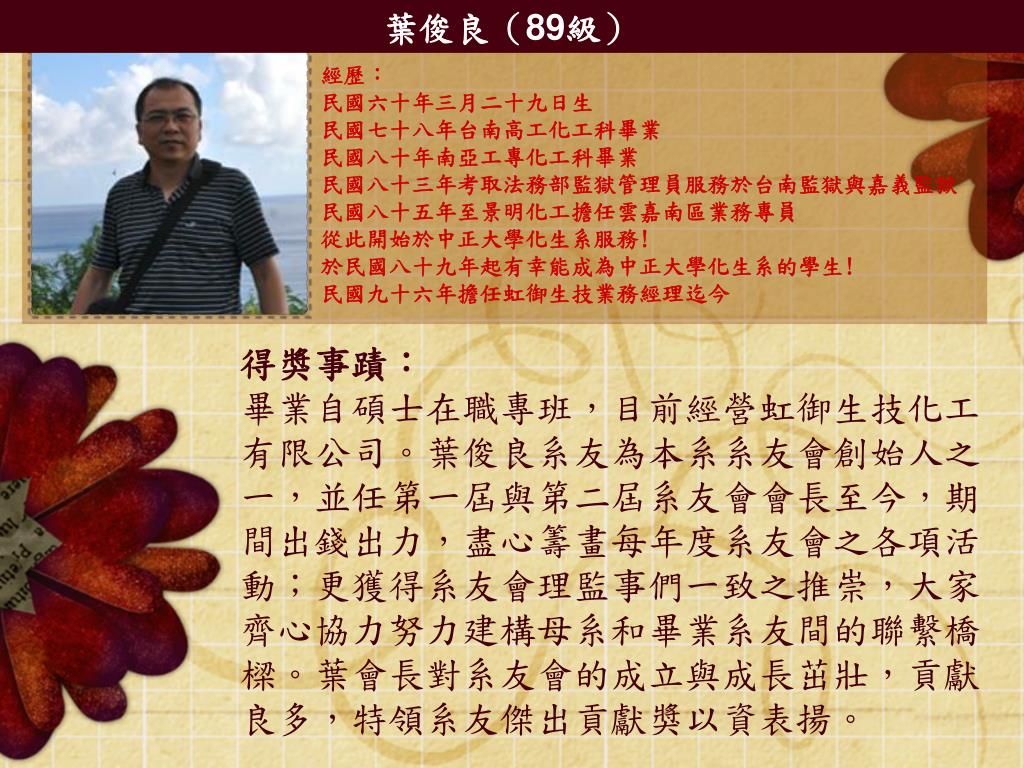 葉俊良（89級）
經歷：
民國六十年三月二十九日生
民國七十八年台南高工化工科畢業
民國八十年南亞工專化工科畢業
民國八十三年考取法務部監獄管理員服務於台南監獄與嘉義監獄
民國八十五年至景明化工擔任雲嘉南區業務專員
從此開始於中正大學化生系服務!
於民國八十九年起有幸能成為中正大學化生系的學生!
民國九十六年擔任虹御生技業務經理迄今
得獎事蹟：
畢業自碩士在職專班，目前經營虹御生技化工
有限公司。葉俊良系友為本系系友會創始人之
一，並任第一屆與第二屆系友會會長至今，期
間出錢出力，盡心籌畫每年度系友會之各項活
動；更獲得系友會理監事們一致之推崇，大家
齊心協力努力建構母系和畢業系友間的聯繫橋
樑。葉會長對系友會的成立與成長茁壯，貢獻
良多，特領系友傑出貢獻獎以資表揚。